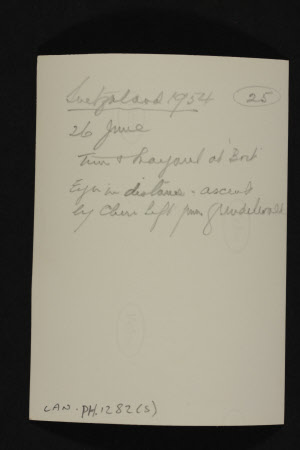 Switzerland 1954
25
26 June
Tim & Margaret at 'Bort'
Eiger in distance - ascent
by Chair lift from Grindelwald
LAN.PH.1282(S)